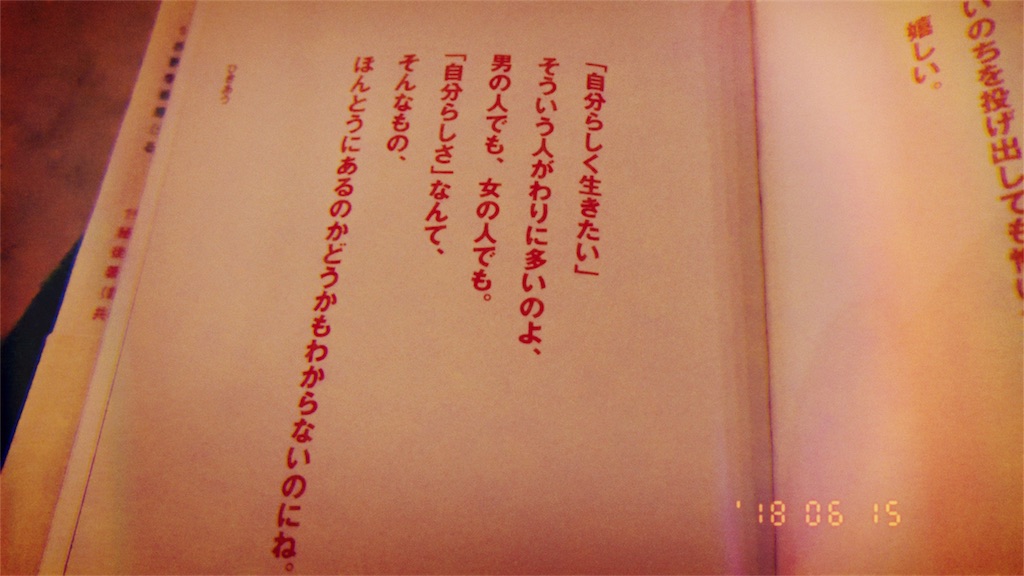 いのちを投げ出しても
嬉しい。
「自分らしく生きたい」
そういう人がわりに多いのよ、
男の人でも、女の人でも。
「自分らしさ」なんて、
そんなもの、
ほんとうにあるのかどうかもわからないのにね。
'18 06 15